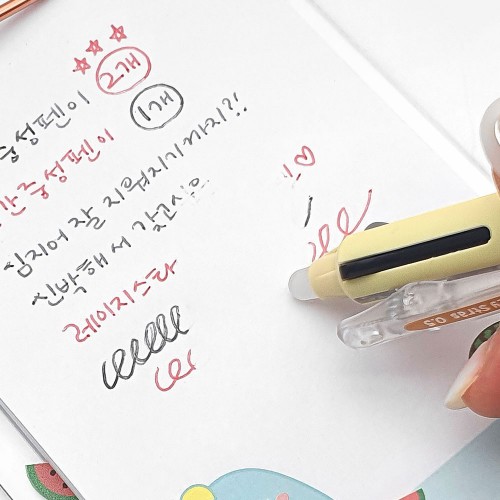 중성펜이 2개
간 중성펜이 1개
심지어 잘 지워지기까지?!
신박해서 갖고싶으
레이지스타
Stras 0.5